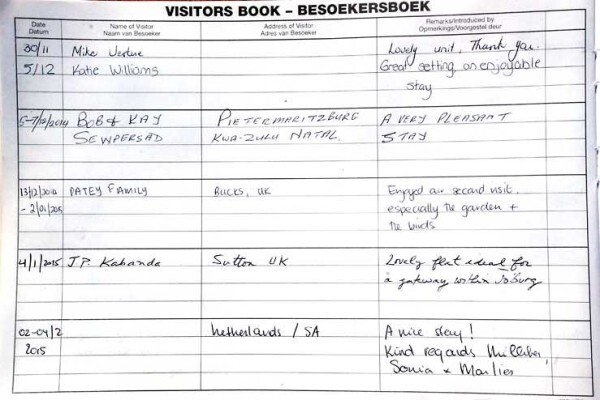 VISITORS BOOK – BESOEKERSBOEK
Date Name of Visitor Address of Visitor Remarks/Introduced by
Datum Naam van Besoeker Adres van Besoeker Opmerkings/Voorgestel deur
30/11 Mike Lovely unit, Thank you.
5/12 Katie Williams Great setting, an enjoyable
stay
5-7/12/2014 BOB & KAY PIETERMARITZBURG A VERY PLEASANT
SEWPERSAD KWA-ZULU NATAL. STAY
13/12/2014 PATEY FAMILY BUCKS, UK Enjoyed our second visit,
- 2/01/2015 especially the garden +
the birds
4/1/2015 J.P. Kabanda Sutton UK Lovely flat ideal for
a gateway within Jo'burg
02-04/2 Netherlands / SA A nice stay!
2015 Kind regards
Sonia & Marlies